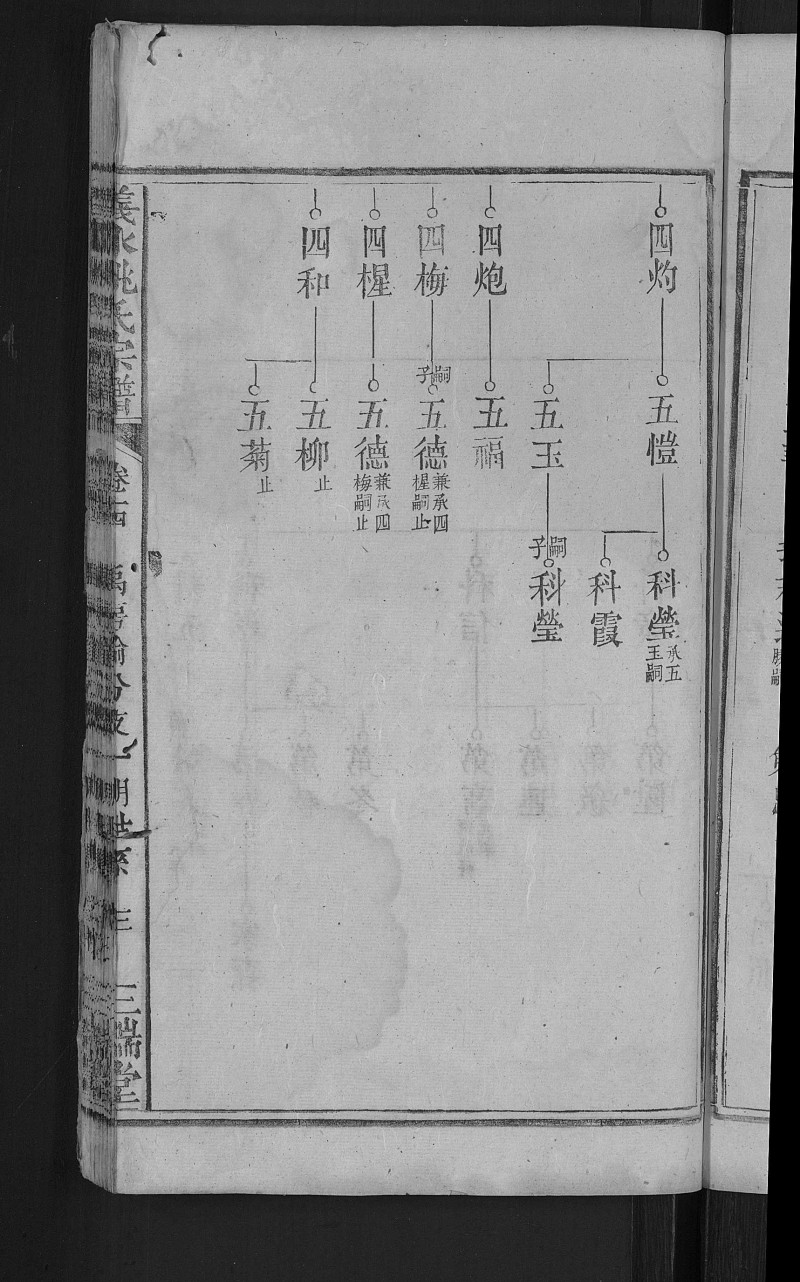 四灼
五愷
科瑩 承五玉嗣
科霞
五玉
嗣子
科瑩
四炮
五福
四梅
嗣子
五德 兼承四楃嗣止
四楃
五德 兼承四梅嗣止
四和
五柳 止
五菊 止
姚氏宗譜
卷十四
分支
明世系
三瑞堂